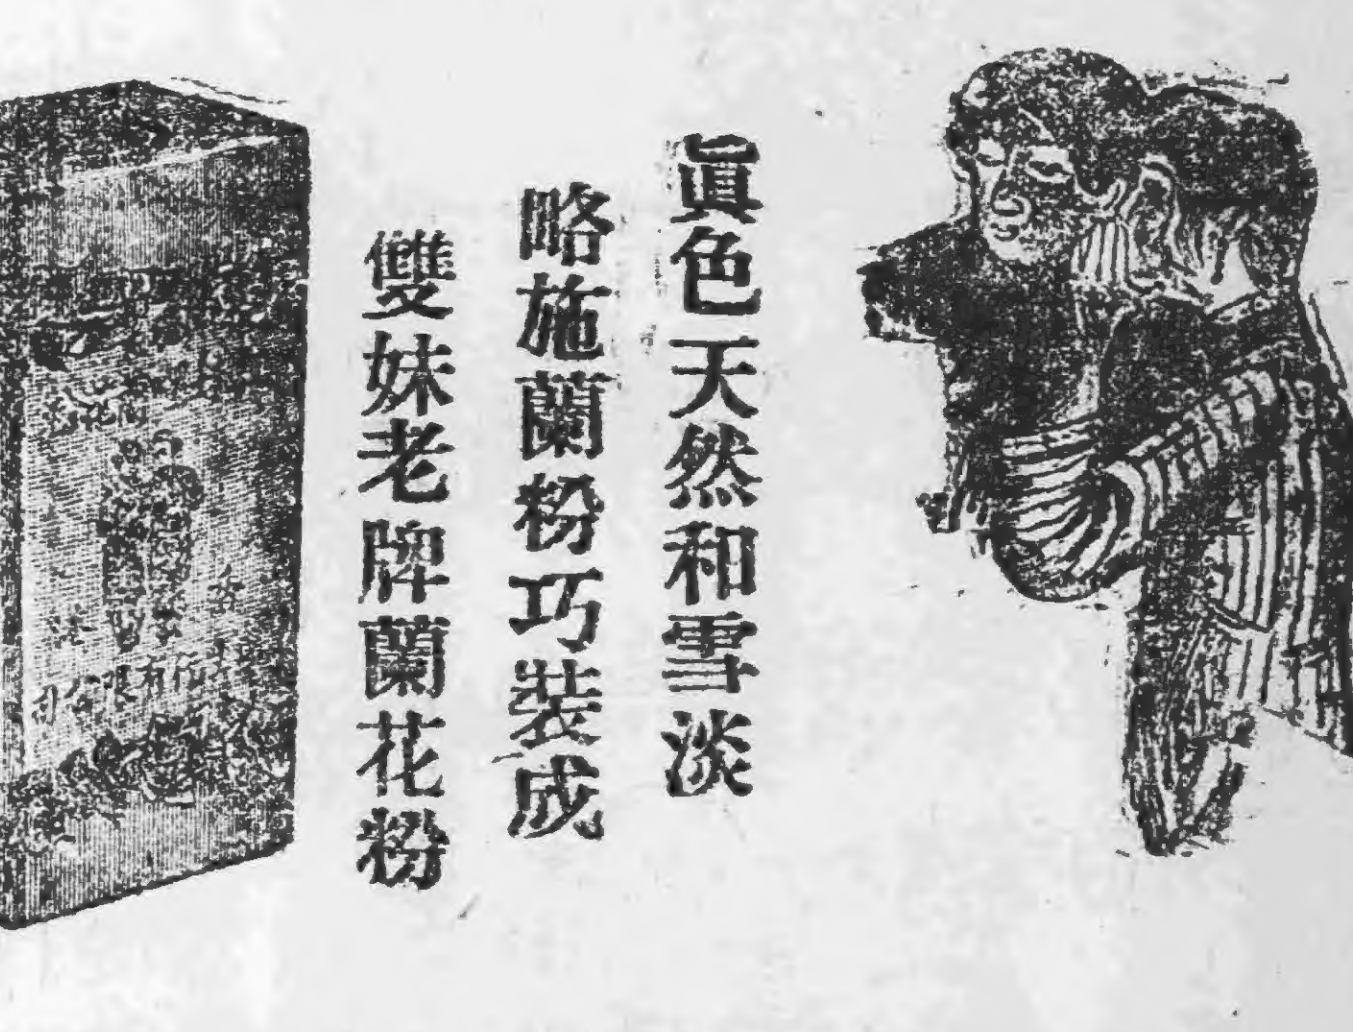 眞色天然和雪淡
略施蘭粉巧裝成
雙妹老牌蘭花粉